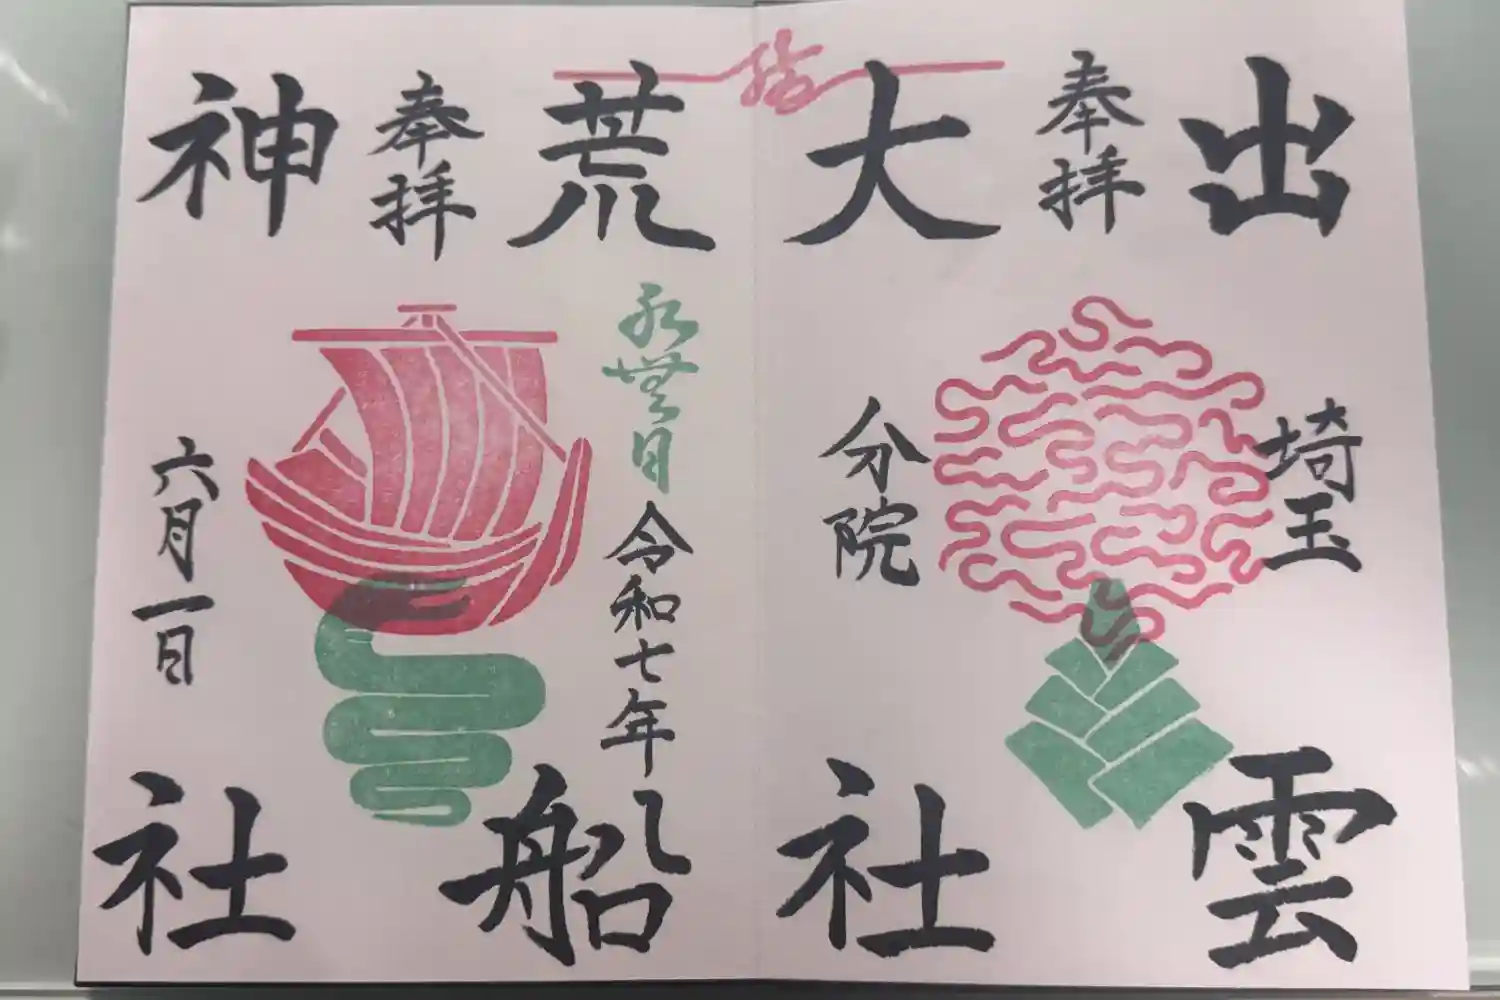 出雲
奉拝
大社
埼玉
分院
結
荒船
奉拝
神社
水無月
令和七年
六月一日